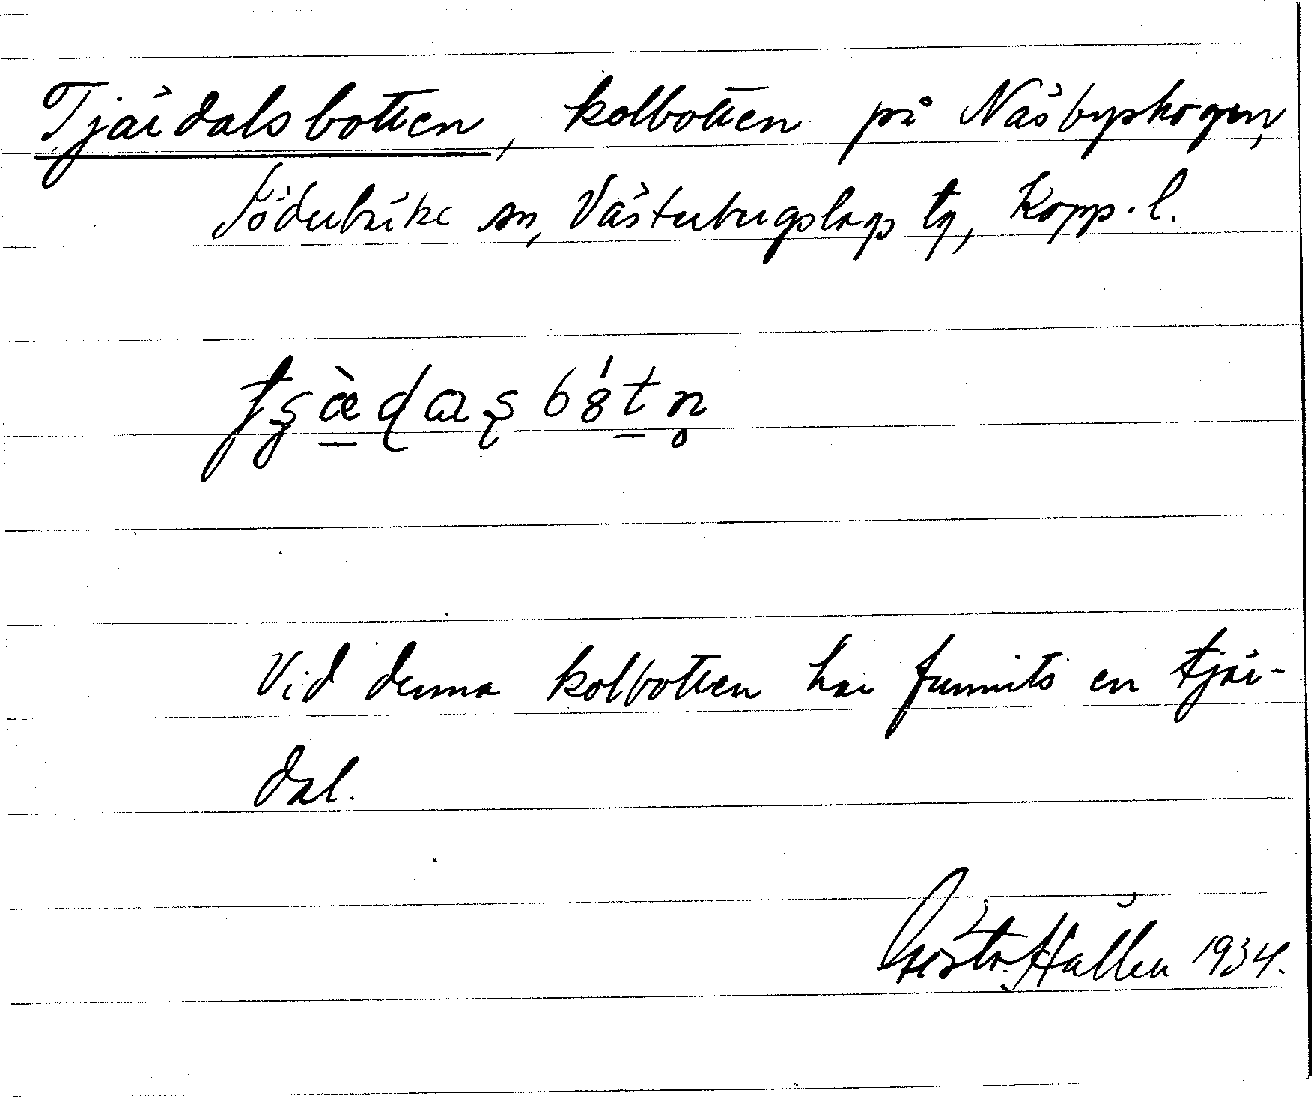 Tjärdalsbotten, kolbotten på Näsbyskogen,
Söderbärke sn, Västerbergslags tg, Kopp. l.
Vid denna kolbotten har funnits en tjär-
dal.
Gösta Hallén 1934.